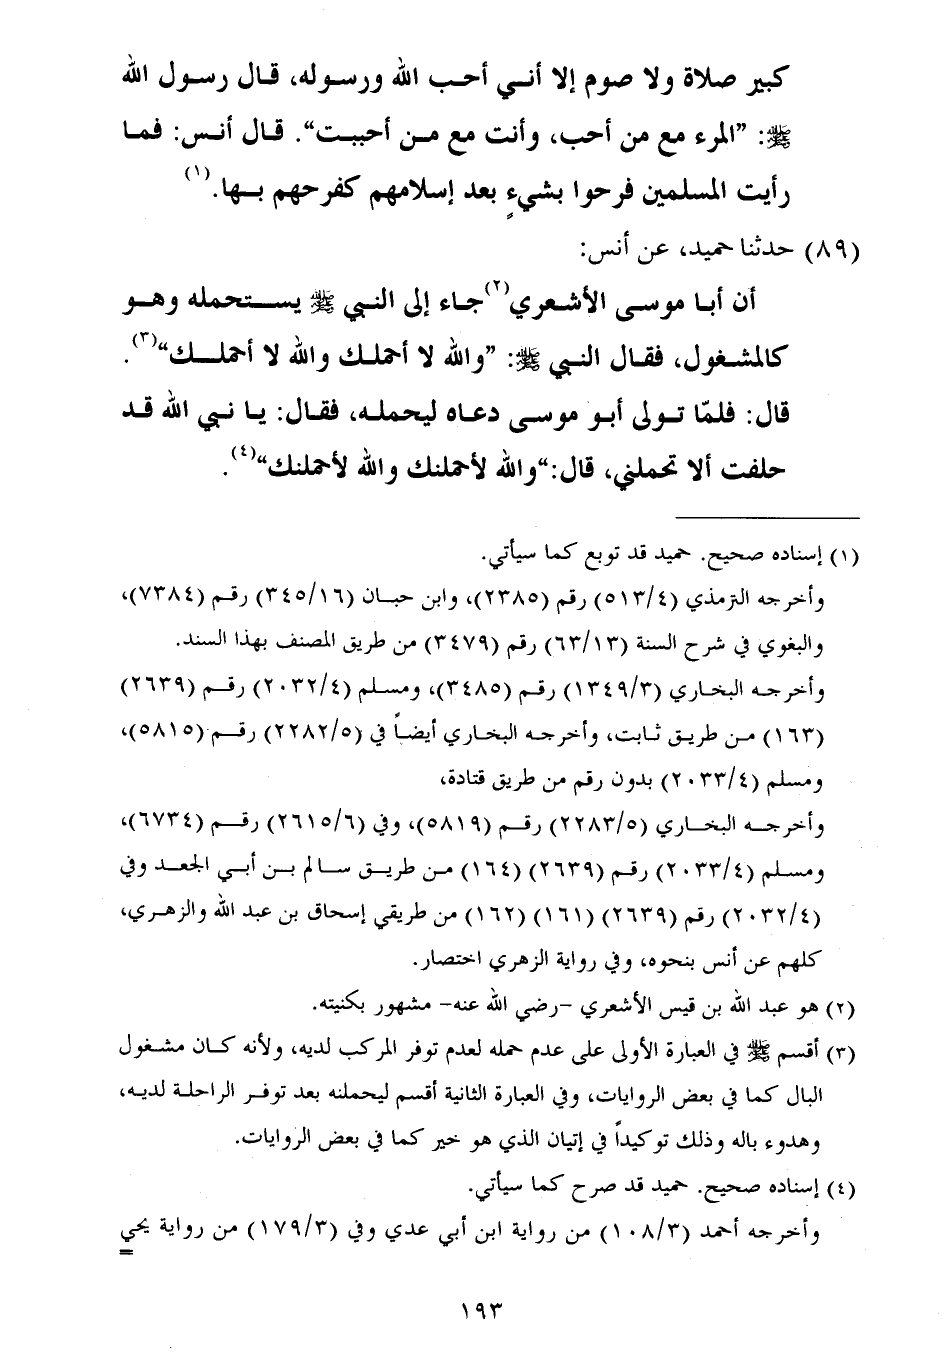 كبير صلاة ولا صوم إلا أنـي أحـب الله ورسـوله، قـال رسـول الله
ﷺ: ”المرء مع من أحب، وأنت مع مـن أحببـت“. قـال أنـس: فمـا
رأيت المسلمين فرحوا بشيءٍ بعد إسلامهم كفرحهم بـها.(١)
(٨٩) حدثنا حميد، عن أنس:
أن أبـا موسـى الأشـعري(٢)جـاء إلى النـبي ﷺ يسـتحمله وهـو
كالمشـغول، فقـال النـبي ﷺ: ”والله لا أحملـك والله لا أحملـك“(٣).
قال: فلمّا تـولى أبـو موسـى دعـاه ليحملـه، فقـال: يـا نـبي الله قـد
حلفت ألا تحملني، قال:“والله لأحملنك والله لأحملنك“(٤).
(١) إسناده صحيح. حميد قد توبع كما سيأتي.
وأخرجه الترمذي (٥١٣/٤) رقم (٢٣٨٥)، وابن حبـان (٣٤٥/١٦) رقـم (٧٣٨٤)،
والبغوي في شرح السنة (٦٣/١٣) رقم (٣٤٧٩) من طريق المصنف بهذا السند.
وأخرجـه البخـاري (١٣٤٩/٣) رقـم (٣٤٨٥)، ومسـلم (٢٠٣٢/٤) رقـم (٢٦٣٩)
(١٦٣) مـن طريـق ثـابت، وأخرجـه البخـاري أيضـاً في (٢٢٨٢/٥) رقـم (٥٨١٥)،
ومسلم (٢٠٣٣/٤) بدون رقم من طريق قتادة،
وأخرجـه البخـاري (٢٢٨٣/٥) رقـم (٥٨١٩)، وفي (٢٦١٥/٦) رقـم (٦٧٣٤)،
ومسـلم (٢٠٣٣/٤) رقـم (٢٦٣٩) (١٦٤) مـن طريـق سـالم بـن أبـي الجعـد وفي
(٢٠٣٢/٤) رقم (٢٦٣٩) (١٦١) (١٦٢) من طريقي إسحاق بن عبد الله والزهري،
كلهم عن أنس بنحوه، وفي رواية الزهري اختصار.
(٢) هو عبد الله بن قيس الأشعري -رضي الله عنه- مشهور بكنيته.
(٣) أقسم ﷺ في العبارة الأولى على عدم حمله لعدم توفر المركب لديه، ولأنه كـان مشـغول
البال كما في بعض الروايات، وفي العبارة الثانية أقسم ليحملنه بعد توفـر الراحلـة لديـه،
وهدوء باله وذلك توكيداً في إتيان الذي هو خير كما في بعض الروايات.
(٤) إسناده صحيح. حميد قد صرح كما سيأتي.
وأخرجه أحمد (١٠٨/٣) من رواية ابن أبي عدي وفي (١٧٩/٣) من رواية يحي
=
١٩٣